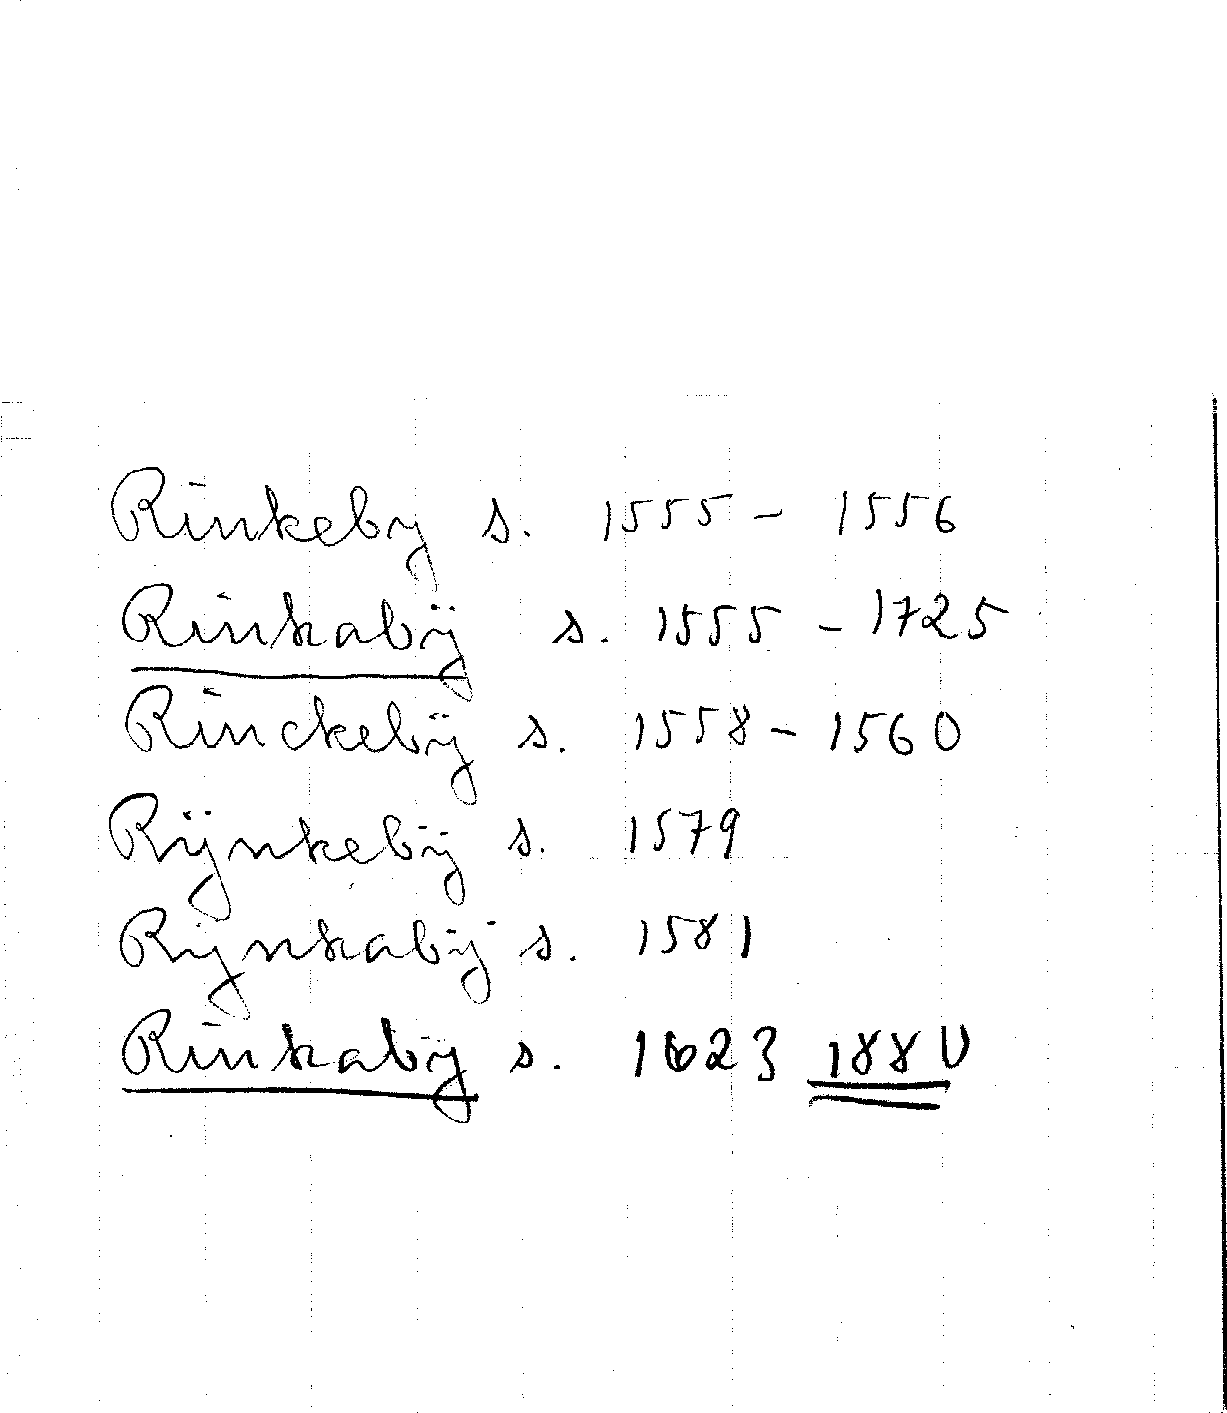 Rinkeby s. 1555 - 1556
Rinkabÿ s. 1555 - 1725
Rinckebÿ s. 1558 - 1560
Rÿnkebÿ s. 1579
Rÿnkabÿ s. 1581
Rinkaby s. 1623 1880